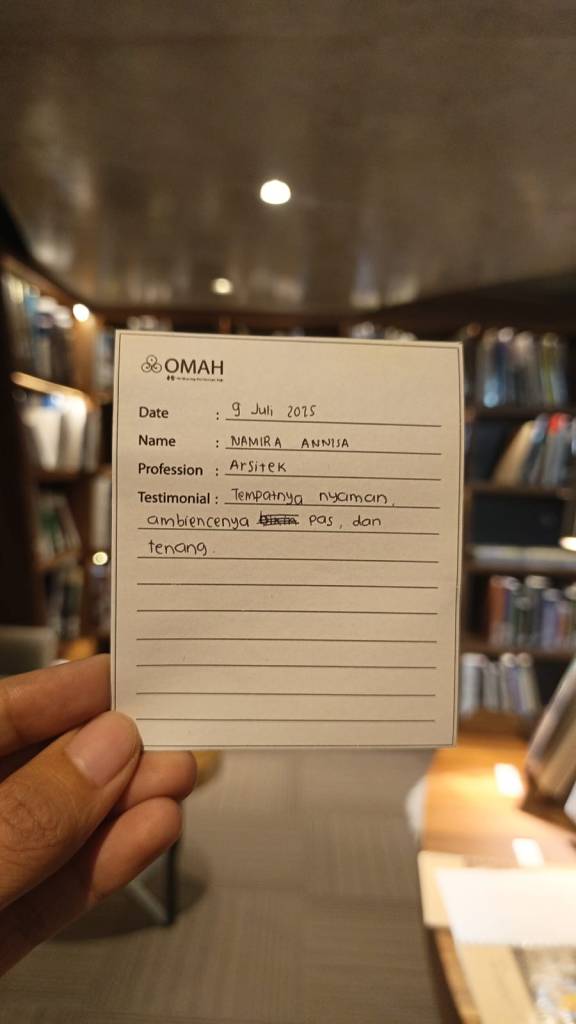 OMAH
Date : 9 Juli 2025
Name : NAMIRA ANNISA
Profession : Arsitek
Testimonial : Tempatnya nyaman,
ambiencenya pas, dan
tenang.